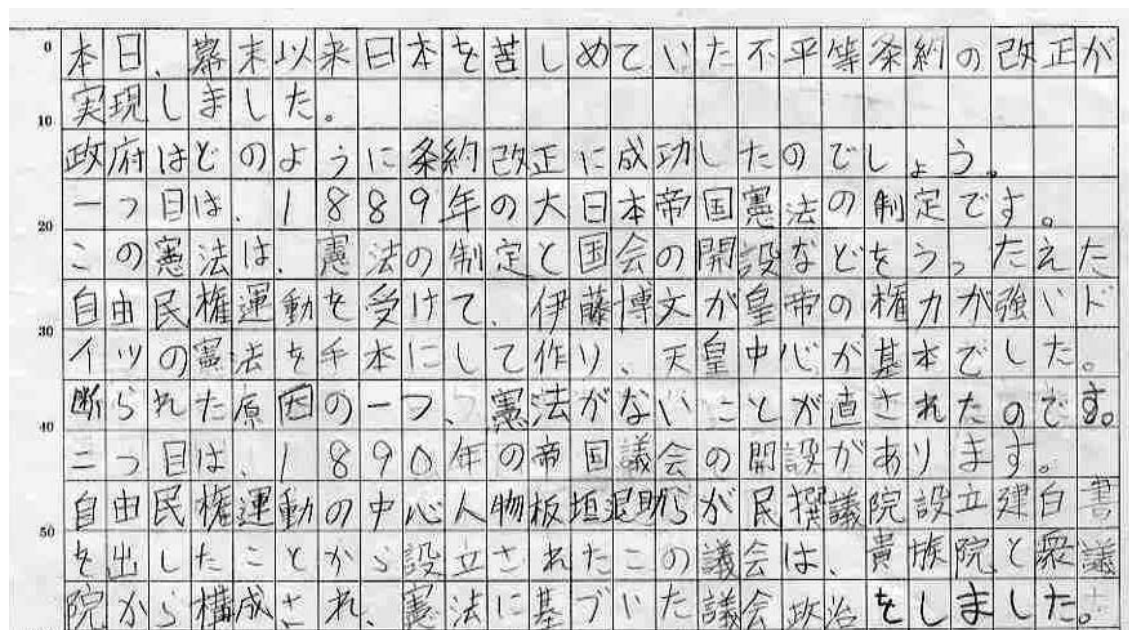 0 本日、幕末以来日本を苦しめていた不平等条約の改正が
10 実現しました。
政府はどのように条約改正に成功したのでしょう。
20 一つ目は、1889年の大日本帝国憲法の制定です。
この憲法は、憲法の制定と国会の開設などをうったえた
30 自由民権運動を受けて、伊藤博文が皇帝の権力が強いド
イツの憲法を手本にして作り、天皇中心が基本でした。
40 断られた原因の一つ、憲法がないことが直されたのです。
二つ目は、1890年の帝国議会の開設があります。
50 自由民権運動の中心人物板垣退助らが民撰議院設立建白書
を出したことから設立されたこの議会は、貴族院と衆議
院から構成され、憲法に基づいた議会政治をしました。